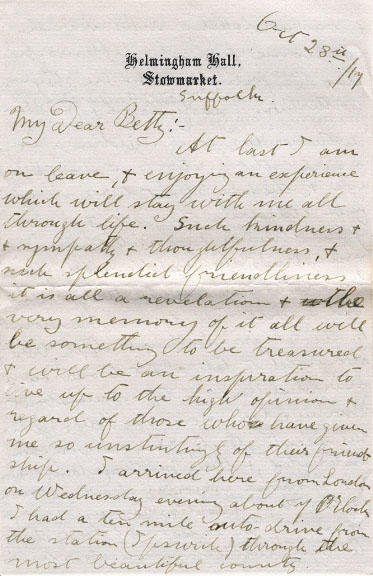 Oct 28th/17
Helmingham Hall,
Stowmarket.
Suffolk.
My Dear Betty:-
At last I am
on leave, & enjoying an experience
which will stay with me all
through life. Such kindness &
& sympathy & thoughtfulness, &
such splendid friendliness
it is all a revelation & the
very memory of it all will
be something to be treasured
& will be an inspiration to
live up to the high opinion &
regard of those who have given
me so unstintingly of their friend
ship. I arrived here from London
on Wednesday evening about 7 O'Clock
I had a ten mile auto-drive from
the station (Ipswich) through the
most beautiful county